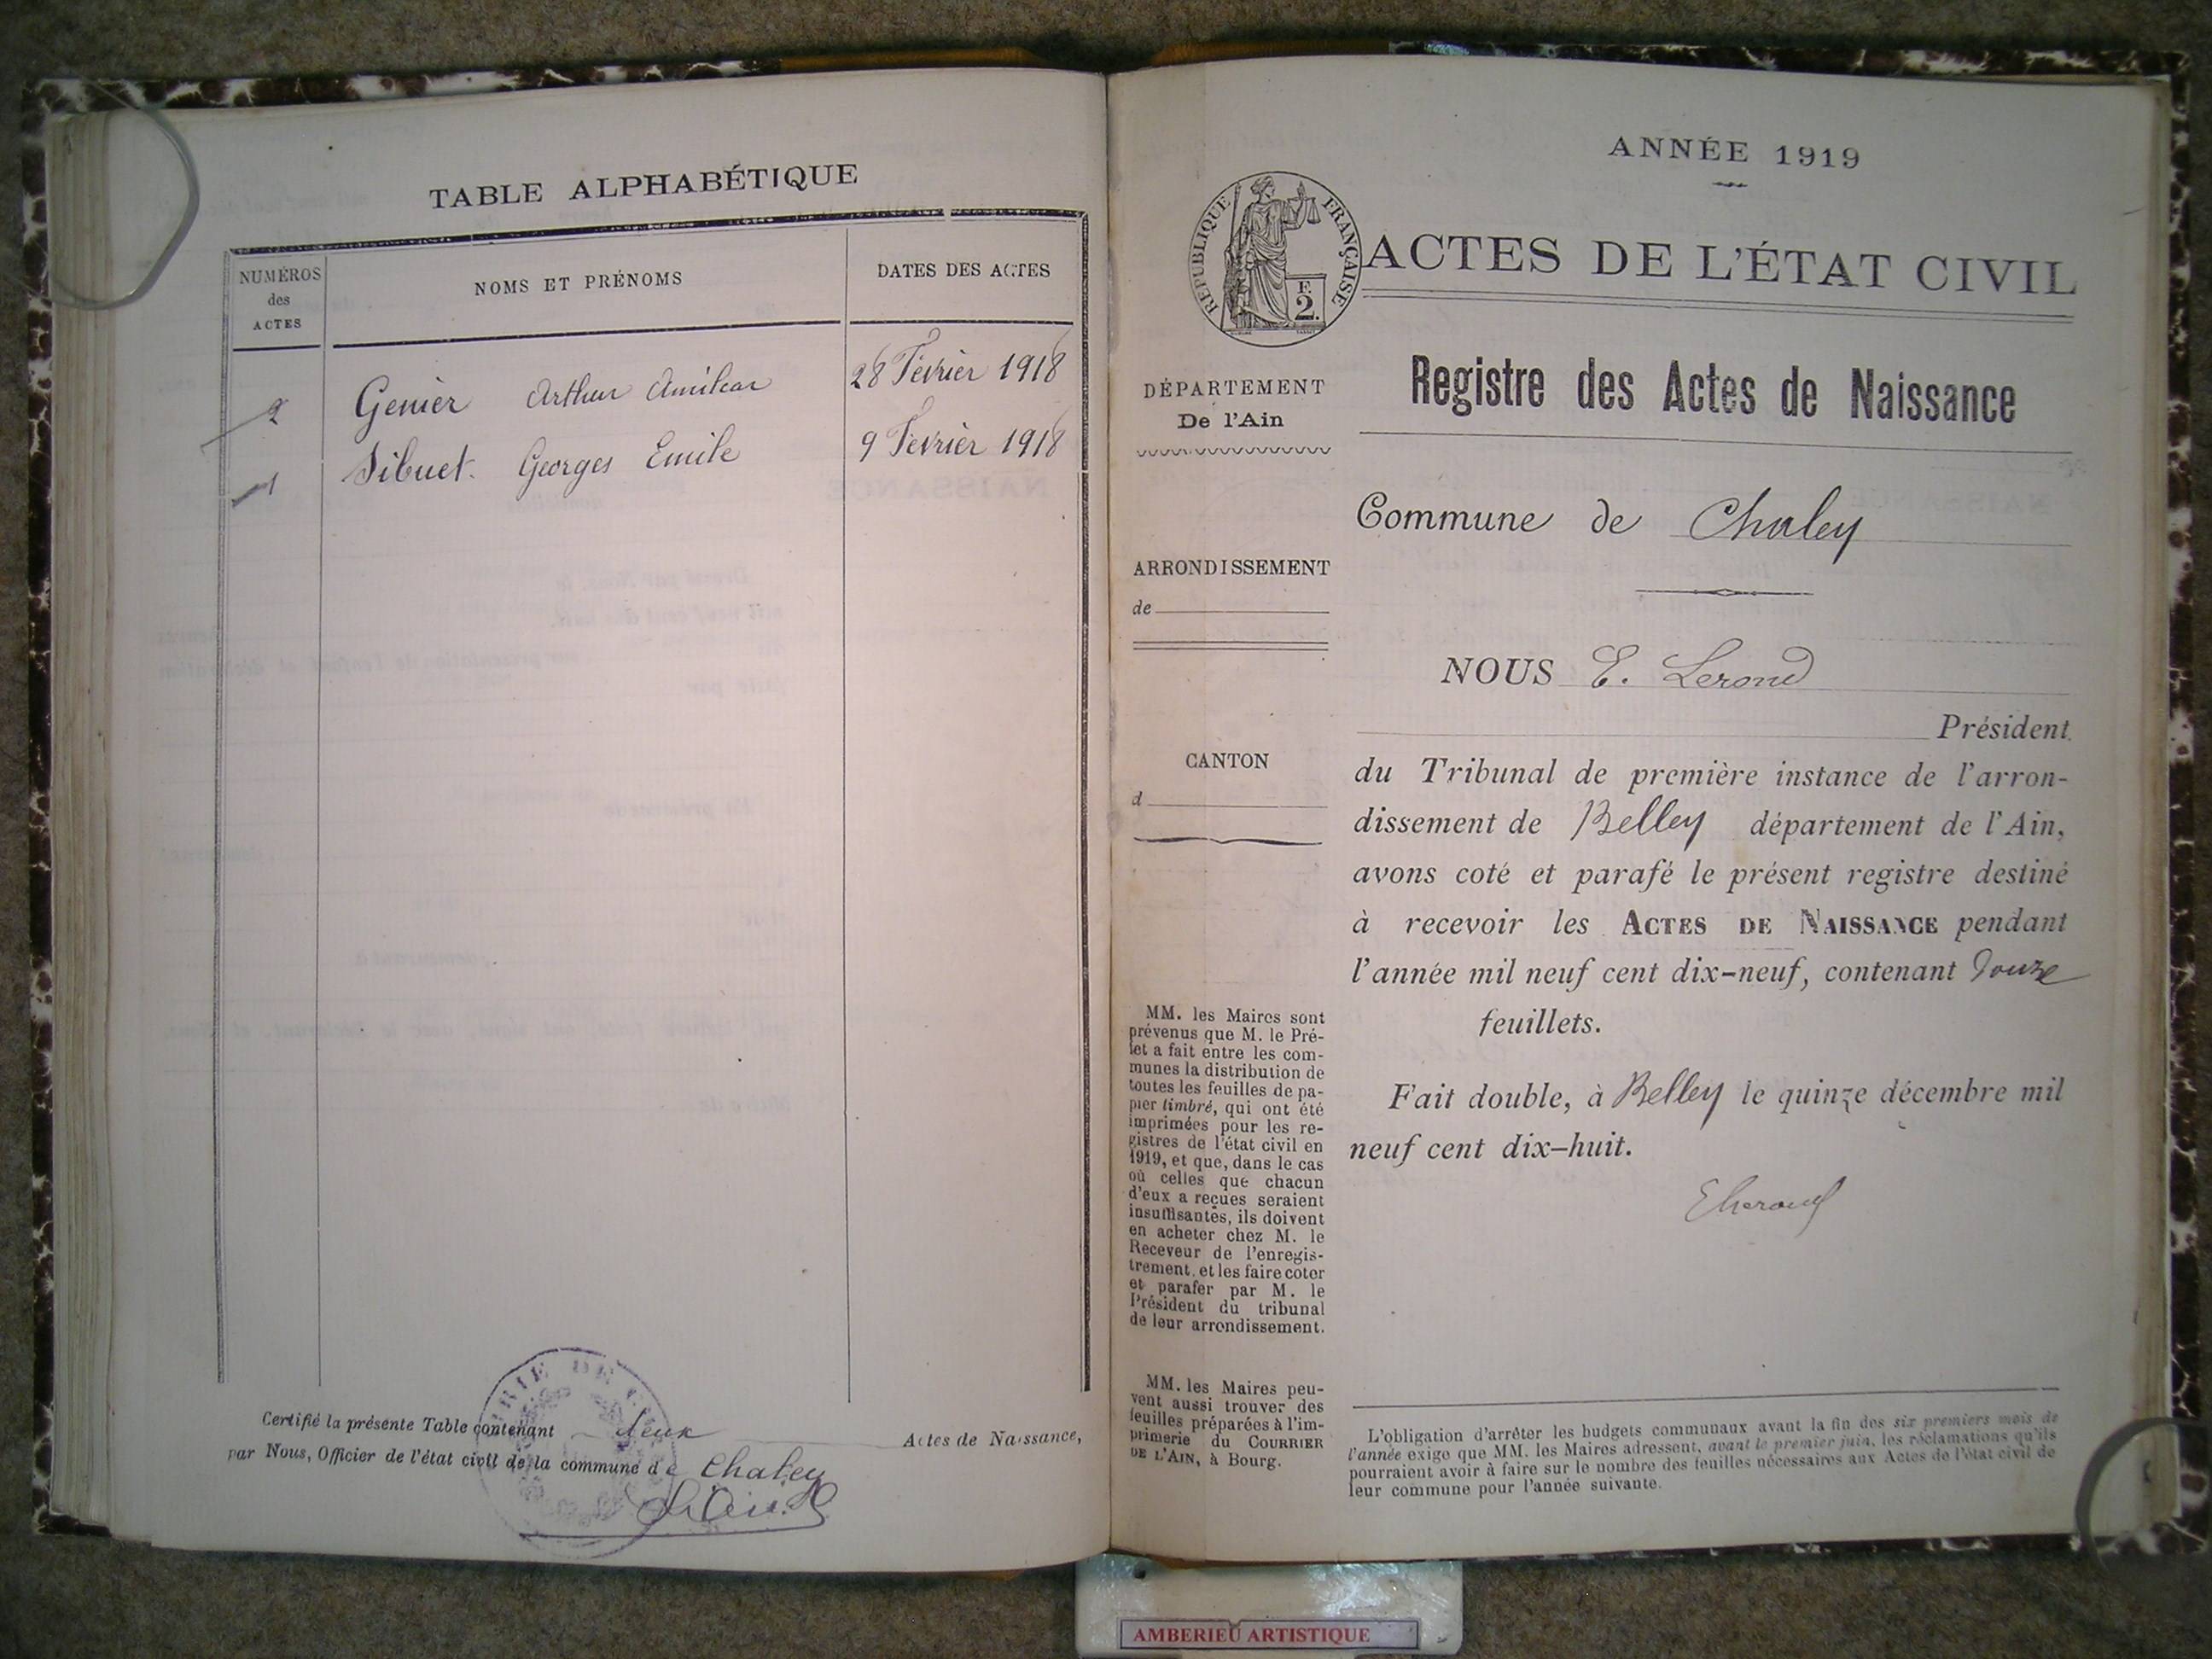 TABLE ALPHABÉTIQUE
NUMÉROS
des
ACTES
NOMS ET PRÉNOMS
DATES DES ACTES
2 Genier Arthur Amilcar 28 Février 1918
1 Sibuet Georges Emile 9 Fevrier 1918
Certifié la présente Table contenant deux Actes de Naissance,
par Nous, Officier de l'état civil de la commune de Chaley
ANNÉE 1919
RÉPUBLIQUE FRANÇAISE
F.
2.
ACTES DE L'ÉTAT CIVIL
DÉPARTEMENT
De l'Ain
Registre des Actes de Naissance
Commune de Chaley
ARRONDISSEMENT
de
NOUS E. Lerond
Président
CANTON
d
du Tribunal de première instance de l'arron-
dissement de Belley département de l'Ain,
avons coté et parafé le présent registre destiné
à recevoir les ACTES DE NAISSANCE pendant
l'année mil neuf cent dix-neuf, contenant douze
feuillets.
Fait double, à Belley le quinze décembre mil
neuf cent dix-huit.
MM. les Maires sont
prévenus que M. le Pré-
fet a fait entre les com-
munes la distribution de
toutes les feuilles de pa-
pier timbré, qui ont été
imprimées pour les re-
gistres de l'état civil en
1919, et que, dans le cas
où celles que chacun
d'eux a reçues seraient
insuffisantes, ils doivent
en acheter chez M. le
Receveur de l'enregis-
trement, et les faire coter
et parafer par M. le
Président du tribunal
de leur arrondissement.
MM. les Maires peu-
vent aussi trouver des
feuilles préparées à l'im-
primerie du COURRIER
DE L'AIN, à Bourg.
L'obligation d'arrêter les budgets communaux avant la fin des six premiers mois de
l'année exige que MM. les Maires adressent, avant le premier juin, les réclamations qu'ils
pourraient avoir à faire sur le nombre des feuilles nécessaires aux Actes de l'état civil de
leur commune pour l'année suivante.
AMBERIEU ARTISTIQUE